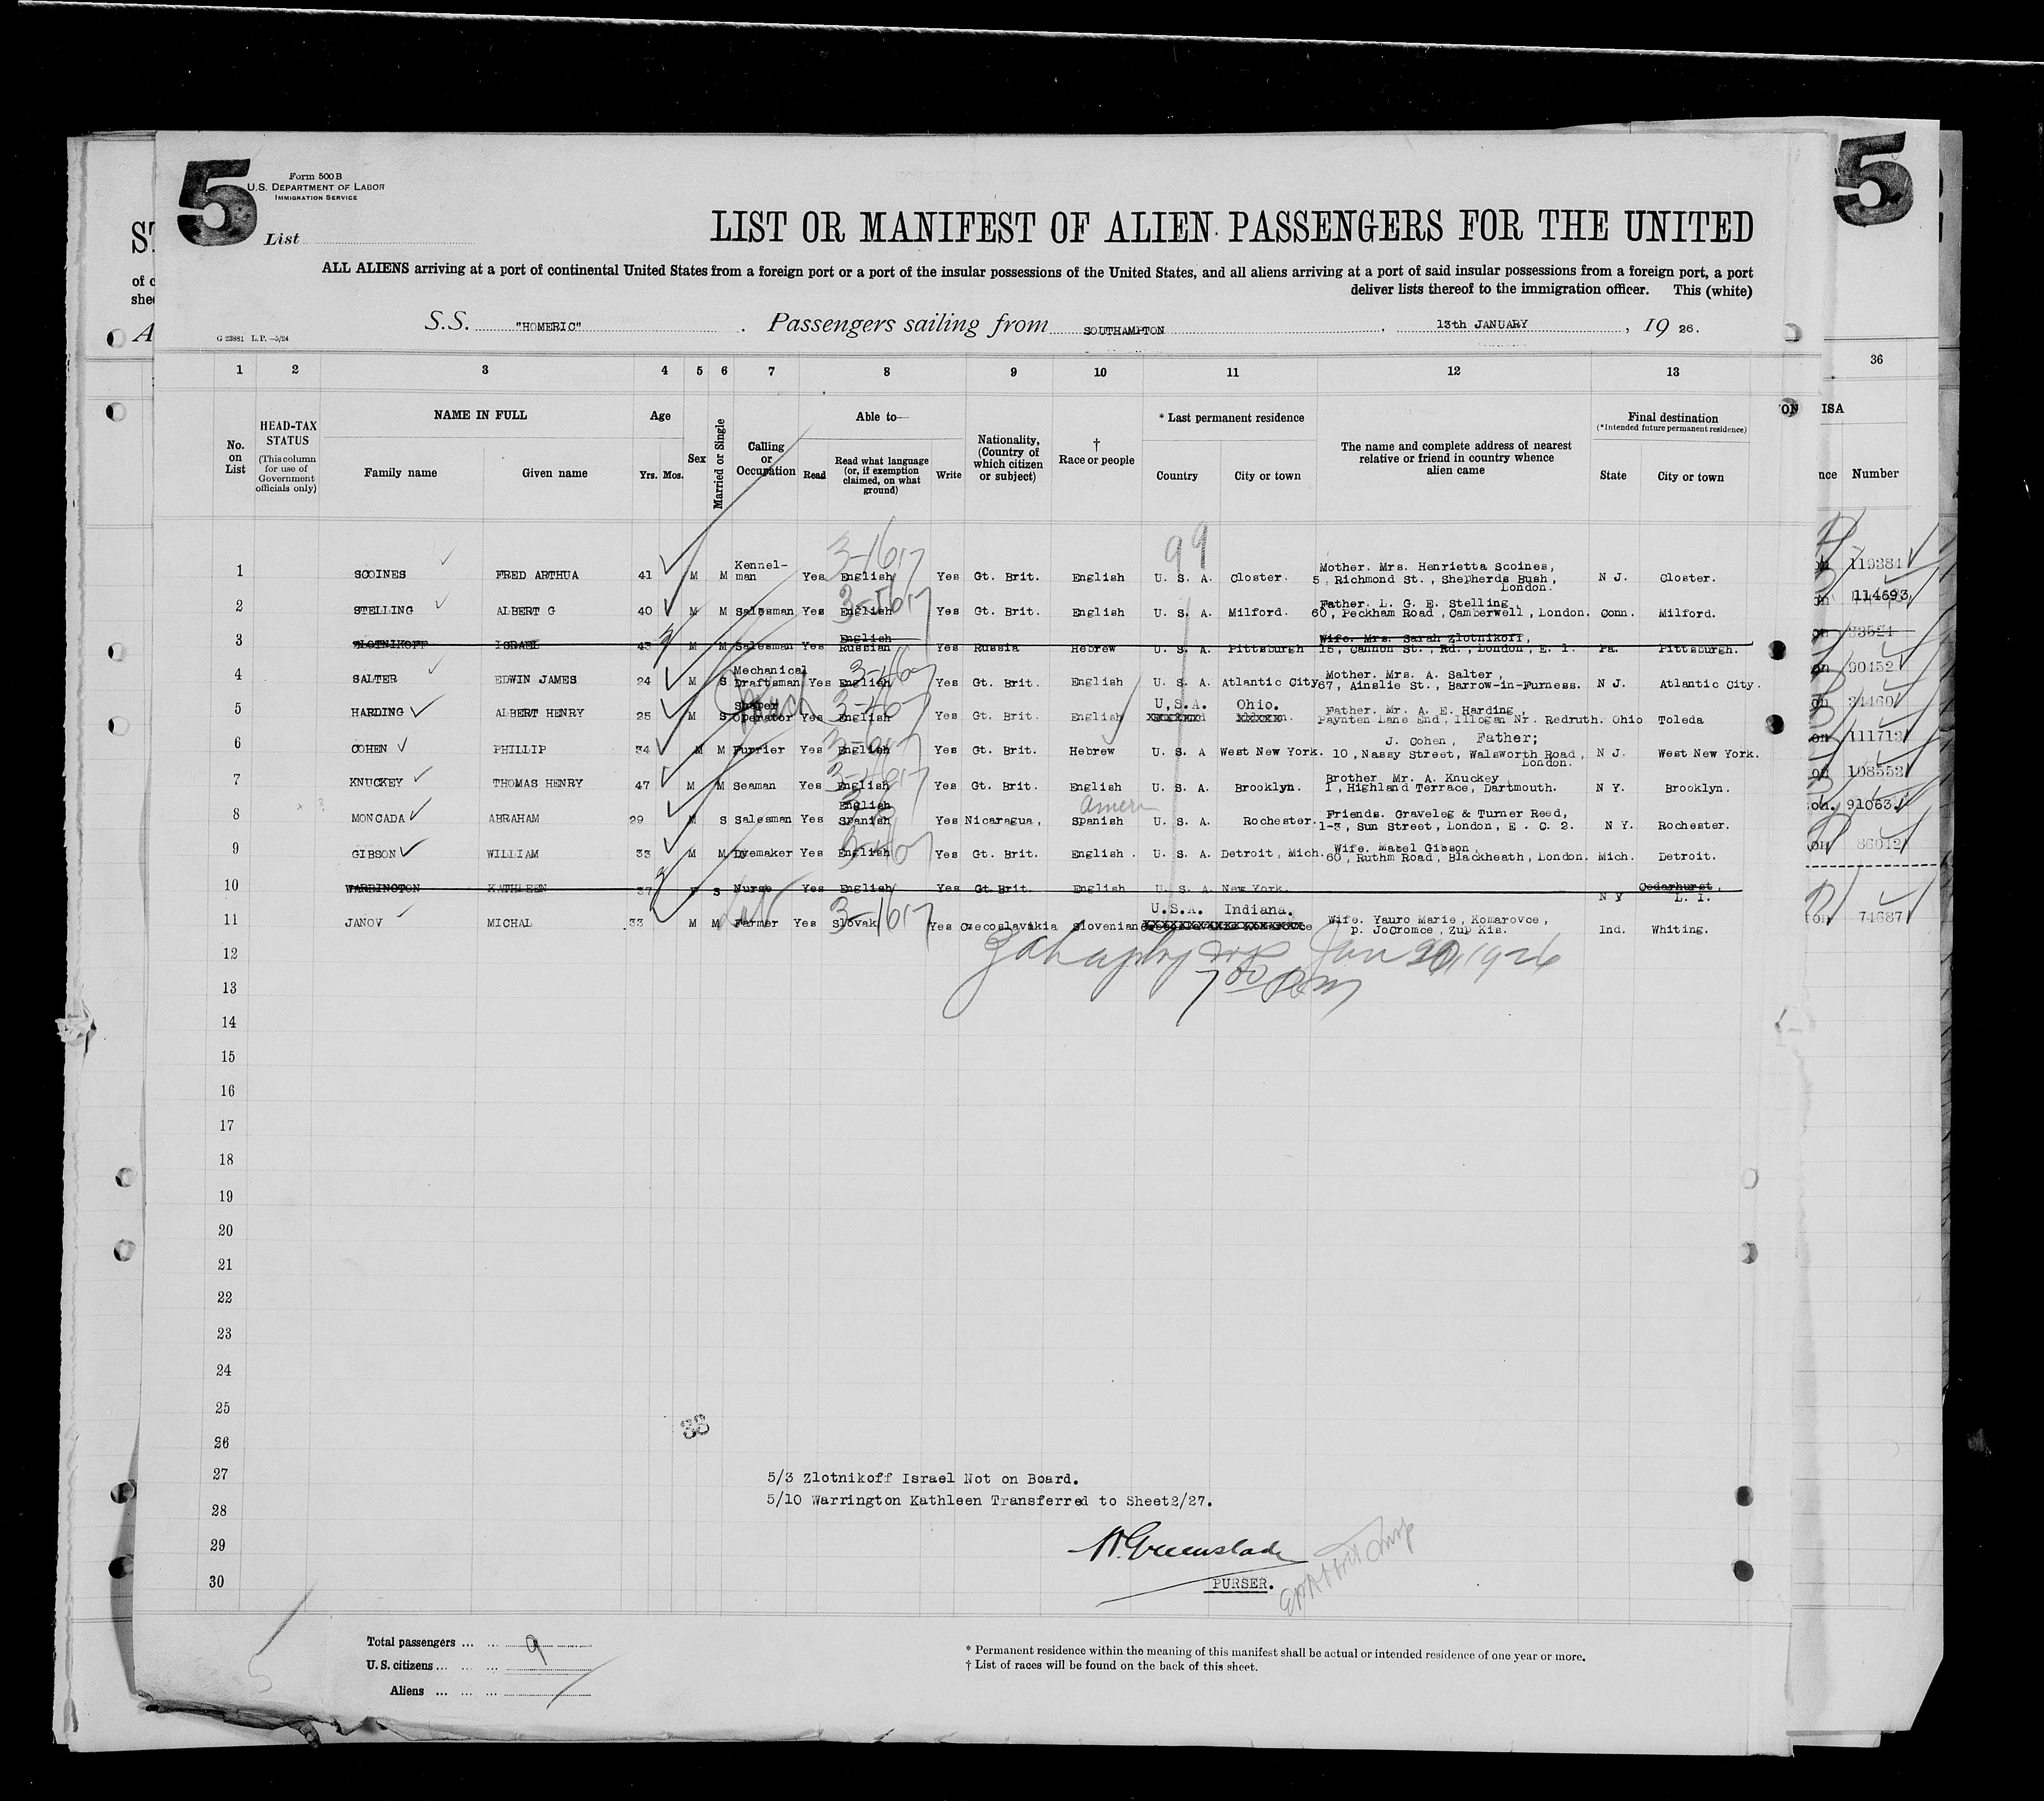 5
Form 500 B
U.S. DEPARTMENT OF LABOR
IMMIGRATION SERVICE
List
5
LIST OR MANIFEST OF ALIEN PASSENGERS FOR THE UNITED
ALL ALIENS arriving at a port of continental United States from a foreign port or a port of the insular possessions of the United States, and all aliens arriving at a port of said insular possessions from a foreign port, a port
deliver lists thereof to the immigration officer. This (white)
S.S. "HOMERIC" . Passengers sailing from SOUTHAMPTON , 13th JANUARY , 19 26.
G 23881 L.P.—5/24
1 2 3 4 5 6 7 8 9 10 11 12 13 36
No. on List
HEAD-TAX STATUS
(This column for use of Government officials only)
NAME IN FULL
Family name
Given name
Age
Yrs. Mos.
Sex
Married or Single
Calling or Occupation
Able to—
Read
Read what language (or, if exemption claimed, on what ground)
Write
Nationality, (Country of which citizen or subject)
† Race or people
* Last permanent residence
Country
City or town
The name and complete address of nearest relative or friend in country whence alien came
Final destination
(*Intended future permanent residence)
State
City or town
Number
1 SCOINES FRED ARTHUA 41 M M Kennel-man Yes English Yes Gt. Brit. English U. S. A. Closter. Mother. Mrs. Henrietta Scoines, 5, Richmond St., Shepherds Bush, London. N J. Closter. 119384
2 STELLING ALBERT G 40 M M Salesman Yes English Yes Gt. Brit. English U. S. A. Milford. Father. L. G. E. Stelling, 60, Peckham Road, Camberwell, London. Conn. Milford. 114693
3 ZLOTNIKOFF ISRAEL 43 M M Salesman Yes English Russian Yes Russia Hebrew U. S. A. Pittsburgh Wife. Mrs. Sarah Zlotnikoff, 15, Cannon St., Rd., London, E. 1. Pa. Pittsburgh.
4 SALTER EDWIN JAMES 24 M S Mechanical Draftsman Yes English Yes Gt. Brit. English U. S. A. Atlantic City Mother. Mrs. A. Salter, 67, Ainslie St., Barrow-in-Furness. N J. Atlantic City. 90452
5 HARDING ALBERT HENRY 25 M S Shaper Operator Yes English Yes Gt. Brit. English U.S.A. Ohio. Father. Mr. A. E. Harding, Paynten Lane End, Illogan Nr. Redruth. Ohio Toleda
6 COHEN PHILLIP 34 M M Furrier Yes English Yes Gt. Brit. Hebrew U. S. A West New York. J. Cohen, Father; 10, Nassy Street, Walsworth Road, London. N J. West New York. 111713
7 KNUCKEY THOMAS HENRY 47 M M Seaman Yes English Yes Gt. Brit. English U. S. A. Brooklyn. Brother Mr. A. Knuckey, 1, Highland Terrace, Dartmouth. N Y. Brooklyn. 108553
8 MONCADA ABRAHAM 29 M S Salesman Yes English Spanish Yes Nicaragua, Spanish U. S. A. Rochester. Friends. Graveleg & Turner Reed, 1-3, Sun Street, London, E. C. 2. N Y. Rochester. 91063.
9 GIBSON WILLIAM 33 M M Dyemaker Yes English Yes Gt. Brit. English. U. S. A. Detroit, Mich. Wife. Mabel Gibson, 60, Ruthm Road, Blackheath, London. Mich. Detroit. 86012
10 WARRINGTON KATHLEEN 37 F S Nurse Yes English Yes Gt. Brit. English U. S. A. New York. N Y Cedarhurst, L. I.
11 JANOV MICHAL 33 M M Farmer Yes Slovak Yes Czecoslavikia Slovenian U.S.A. Indiana. Wife. Yauro Marie, Komarovce, p. JoCromce, Zup Kis. Ind. Whiting. 74687
12 Jan 20 1926
13 7 00 pm
14
15
16
17
18
19
20
21
22
23
24
25
26
27
28
29
30
38
5/3 Zlotnikoff Israel Not on Board.
5/10 Warrington Kathleen Transferred to Sheet2/27.
W. Greenslade
PURSER.
Total passengers ... ... 9
U. S. citizens ... ... ...
Aliens ... ... ...
* Permanent residence within the meaning of this manifest shall be actual or intended residence of one year or more.
† List of races will be found on the back of this sheet.